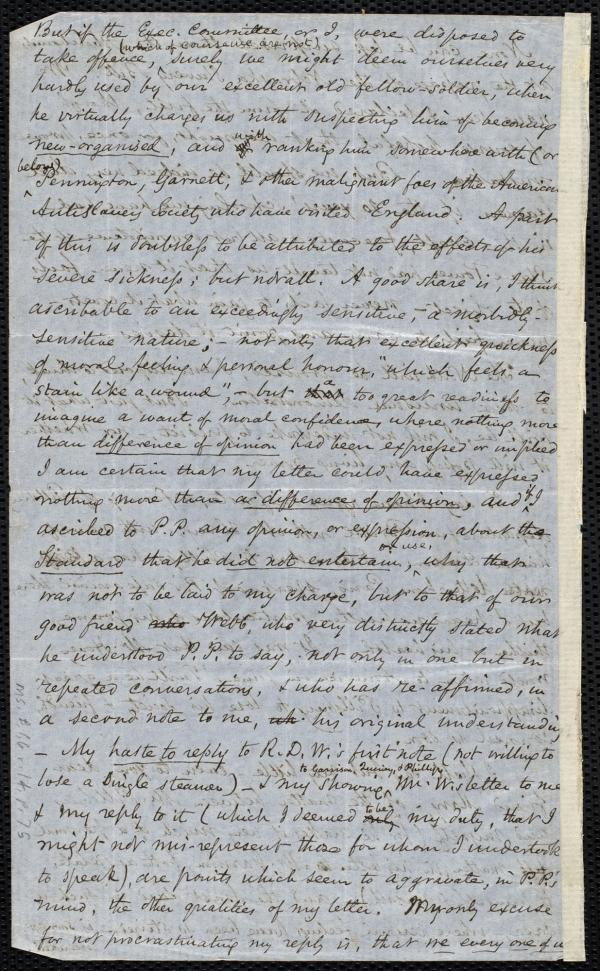 But if the Exec. Committee, or I, were disposed to
(which of course we are not)
take offence, surely we might deem ourselves very
hardly used by our excellent old fellow-soldier, when
he virtually charges us with suspecting him of becoming
new-organised; and with ranking him somewhere with (or
below)
Pennington, Garnett, & other malignant foes of the American
Antislavery Society, who have visited England. A part
of this is doubtless to be attributed to the effects of his
severe sickness; but not all. A good share is, I think
ascribable to an exceedingly sensitive, – a morbidly
sensitive nature; – not only that excellent quickness
of moral feeling & personal honour, "which feels a
stain like a wound", – but a too great readiness to
imagine a want of moral confidence, where nothing more
than difference of opinion had been expressed or implied
I am certain that my letter could have expressed
nothing more than a difference of opinion, and if I
ascribed to P.P. any opinion, or expression, about the
Standard that he did not entertain, or use, why that
was not to be laid to my charge, but to that of our
good friend Webb, who very distinctly stated what
he understood P.P. to say, not only in one but in
repeated conversations, & who has re-affirmed, in
a second note to me, his original understanding
– My haste to reply to R.D.W.'s first note (not willing to
to Garrison, Quincy, & Phillips
lose a single steamer) – & my showing Mr. W's letter to me
& my reply to it (which I seemed to be my duty, that I
might not mis-represent those for whom I undertook
to speak), are points which seem to aggravate, in P.P.'s
mind, the other qualities of my letter. My only excuse
for not procrastinating my reply is, that we every one of us